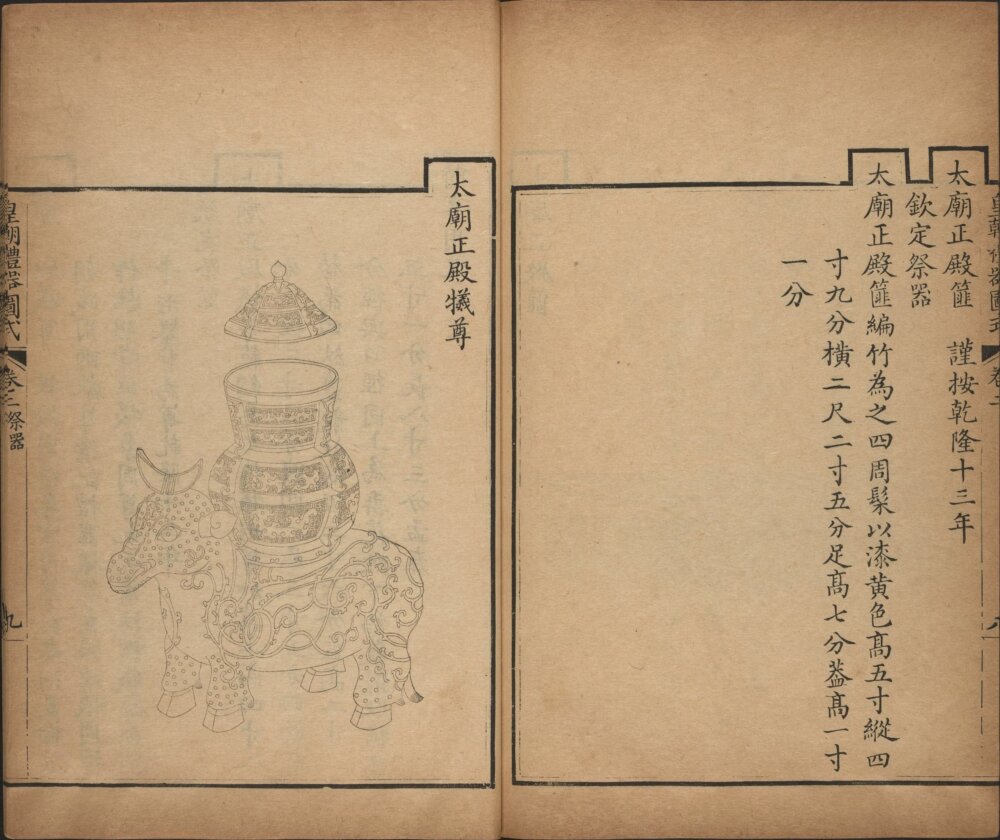 太廟正殿篚　謹按乾隆十三年
欽定祭器
太廟正殿篚編竹為之四周髹以漆黄色髙五寸縱四
寸九分橫二尺二寸五分足髙七分葢髙一寸
一分
太廟正殿犧尊
皇朝禮器圖式　卷二祭器　九